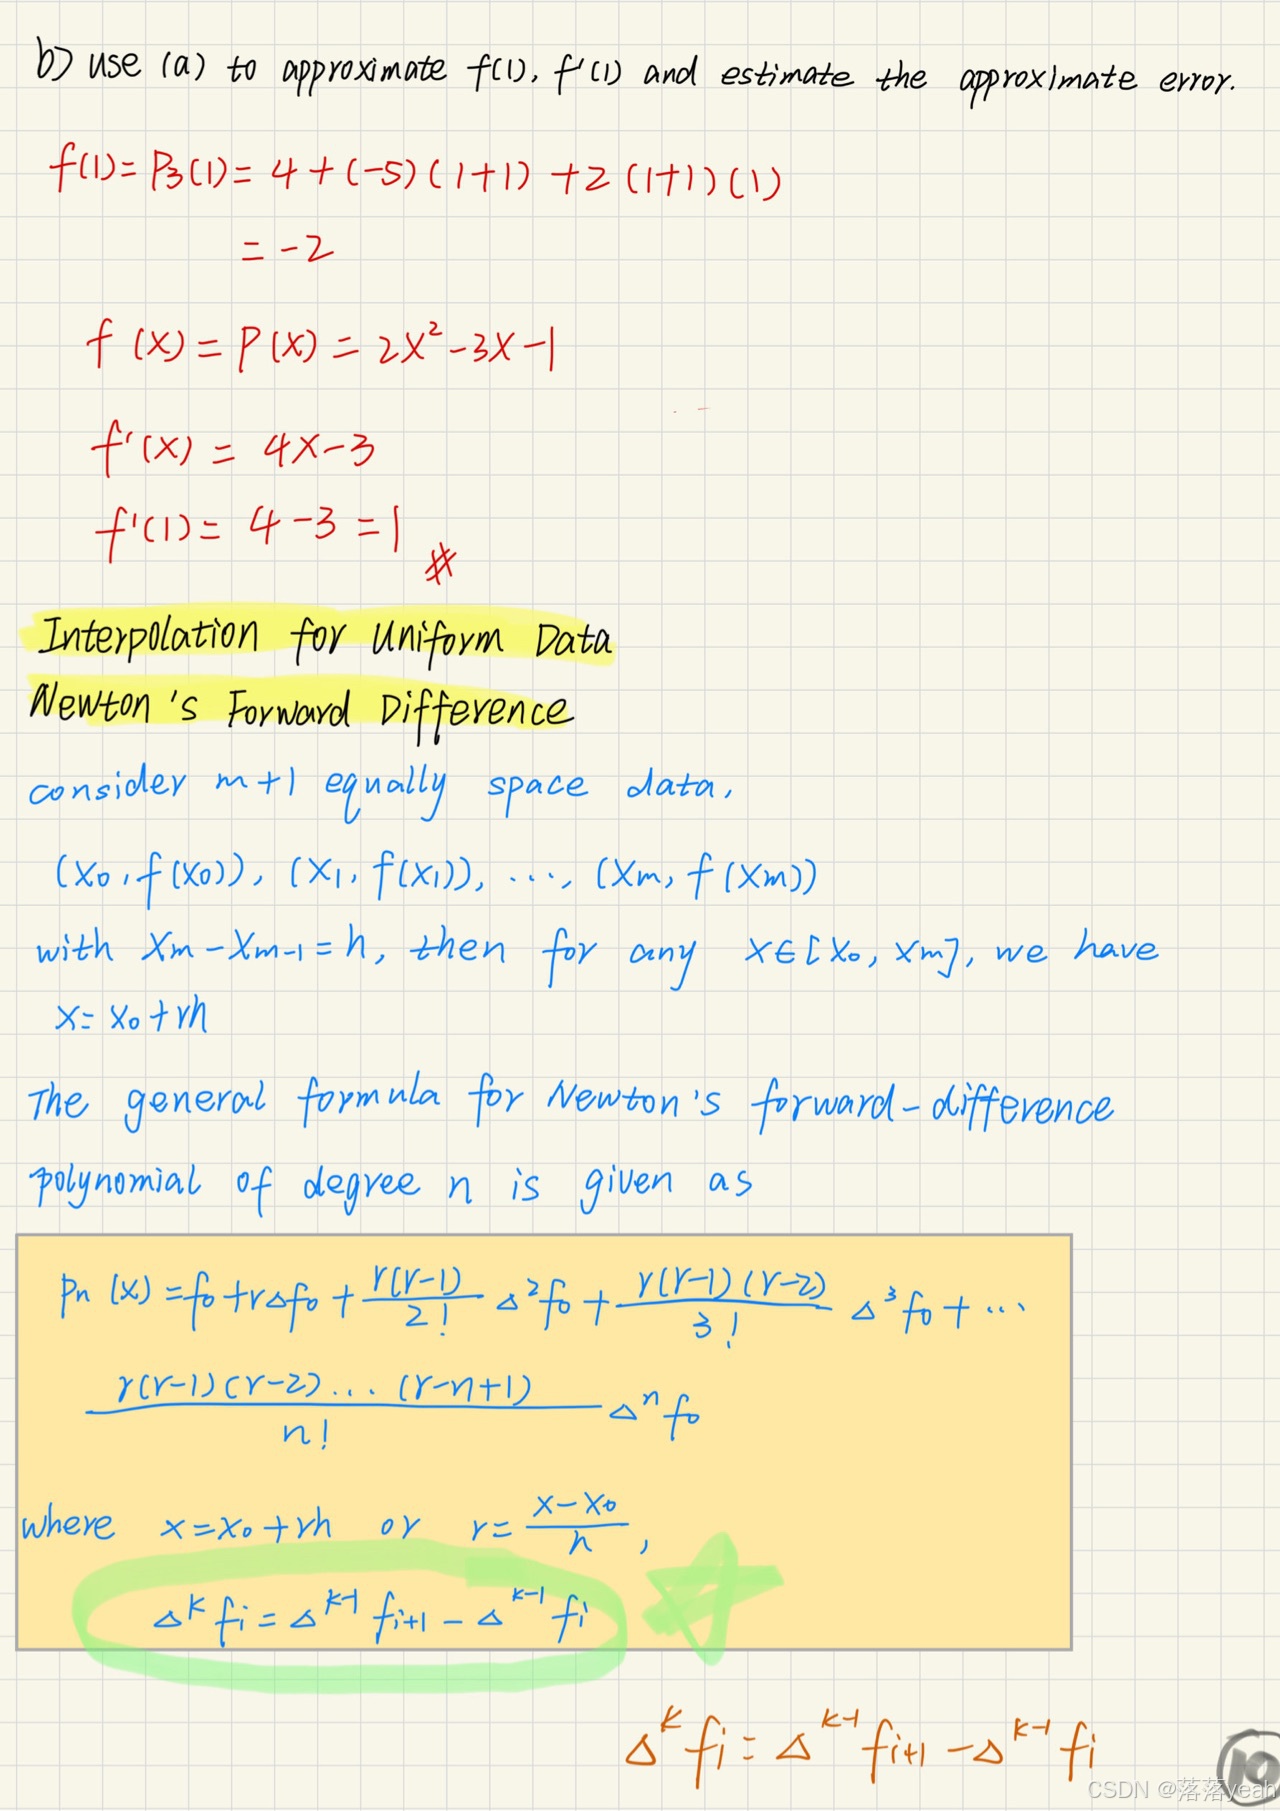 b) use (a) to approximate f(1), f'(1) and estimate the approximate error.
f(1) = P3(1) = 4 + (-5)(1+1) + 2(1+1)(1)
= -2
f(x) = P(x) = 2x² - 3x - 1
f'(x) = 4x - 3
f'(1) = 4 - 3 = 1 #
Interpolation for Uniform Data
Newton's Forward Difference
consider m+1 equally space data,
(x₀, f(x₀)), (x₁, f(x₁)), ..., (xₘ, f(xₘ))
with xₘ - xₘ₋₁ = h, then for any x∈[x₀, xₘ], we have
x = x₀ + rh
The general formula for Newton's forward-difference
polynomial of degree n is given as
Pn(x) = f₀ + rΔf₀ + r(r-1)/2! Δ²f₀ + r(r-1)(r-2)/3! Δ³f₀ + ...
r(r-1)(r-2)...(r-n+1)/n! Δⁿf₀
where x = x₀ + rh or r = (x - x₀)/h,
Δᵏfᵢ = Δᵏ⁻¹fᵢ₊₁ - Δᵏ⁻¹fᵢ
Δᵏfᵢ = Δᵏ⁻¹fᵢ₊₁ - Δᵏ⁻¹fᵢ
10
CSDN @落落yeah